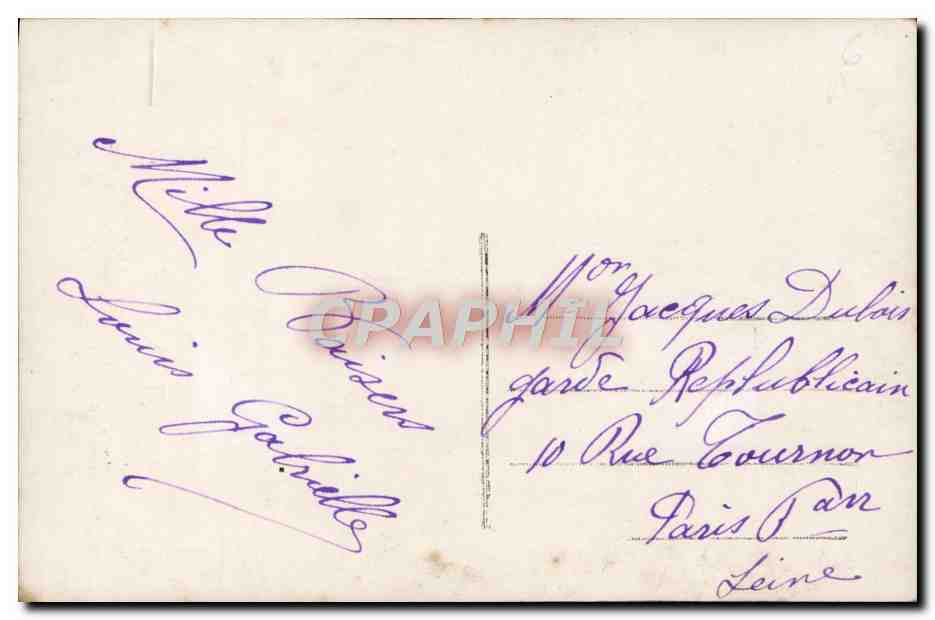 Mille Baisers
Louis Gabrielle
Mon Jacques Dubois
garde Replublicain
10 Rue Tournon
Paris 6 arr
Seine
6
CPAPHIL